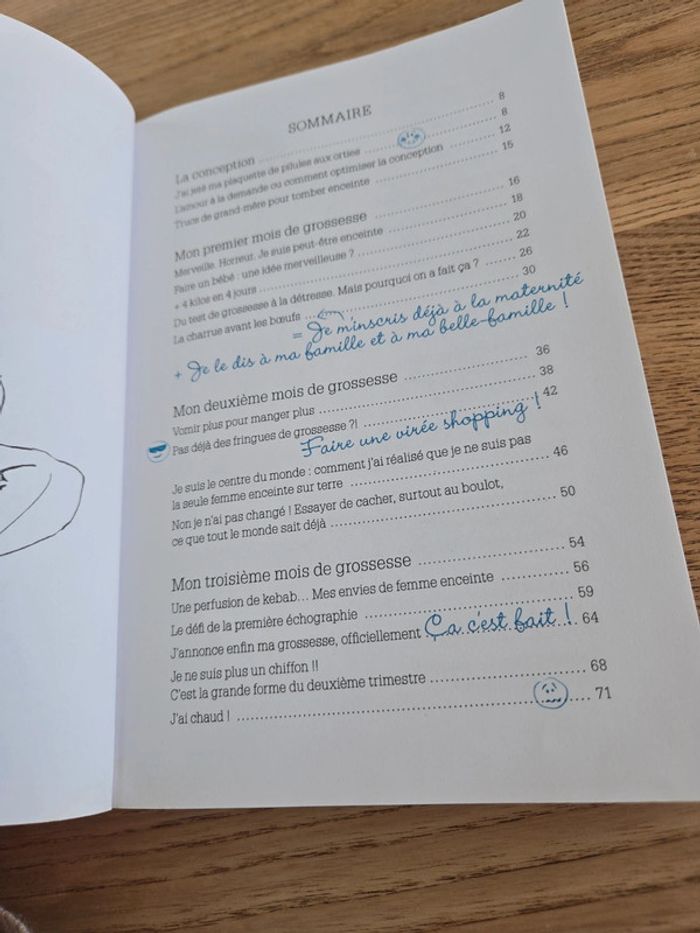 SOMMAIRE
La conception 8
J'ai jeté ma plaquette de pilules aux orties 8
L'amour à la demande ou comment optimiser la conception 12
Trucs de grand-mère pour tomber enceinte 15
Mon premier mois de grossesse 16
Merveille. Horreur. Je suis peut-être enceinte 18
Faire un bébé : une idée merveilleuse ? 20
+ 4 kilos en 4 jours 22
Du test de grossesse à la détresse. Mais pourquoi on a fait ça ? 26
La charrue avant les bœufs 30
= Je m'inscris déjà à la maternité
+ Je le dis à ma famille et à ma belle-famille !
Mon deuxième mois de grossesse 36
Vomir plus pour manger plus 38
Pas déjà des fringues de grossesse ?! 42
Faire une virée shopping !
Je suis le centre du monde : comment j'ai réalisé que je ne suis pas
la seule femme enceinte sur terre 46
Non je n'ai pas changé ! Essayer de cacher, surtout au boulot,
ce que tout le monde sait déjà 50
Mon troisième mois de grossesse 54
Une perfusion de kebab... Mes envies de femme enceinte 56
Le défi de la première échographie 59
J'annonce enfin ma grossesse, officiellement Ça c'est fait ! 64
Je ne suis plus un chiffon !!
C'est la grande forme du deuxième trimestre 68
J'ai chaud ! 71